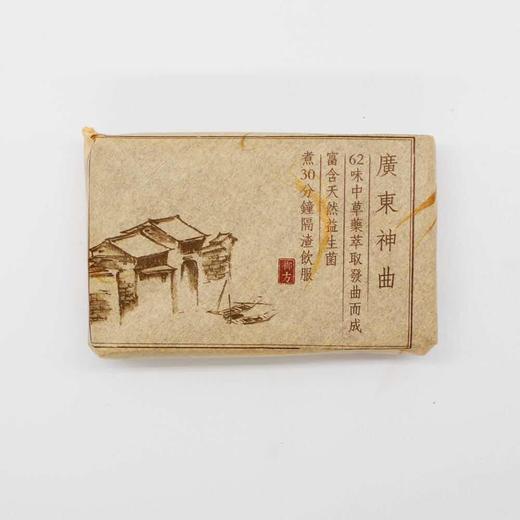 廣東神曲
62味中草藥萃取發曲而成
富含天然益生菌
煮30分鐘隔渣飲服
御方